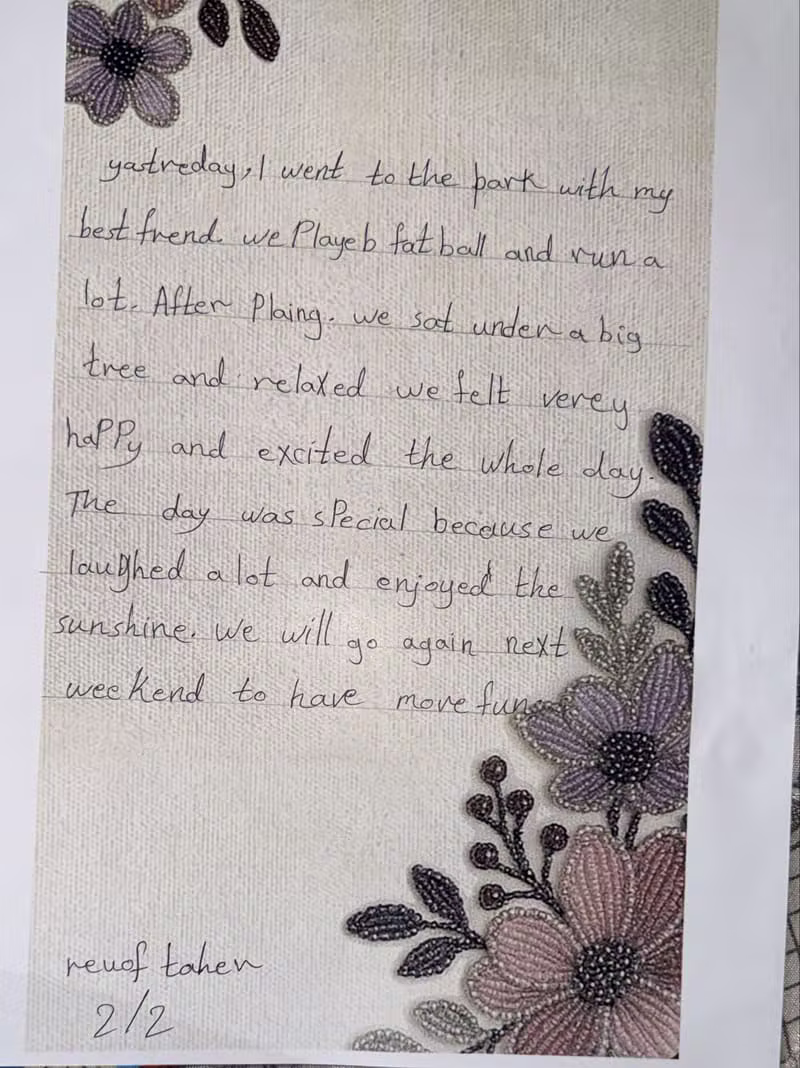 yastreday, I went to the park with my
best frend. we Playeb fatball and run a
lot. After Plaing. we sat under a big
tree and relaxed we felt verey
haPPy and excited the whole day.
The day was sPecial because we
laughed a lot and enjoyed the
sunshine. we will go again next
weekend to have more fun
reuof taher
2/2